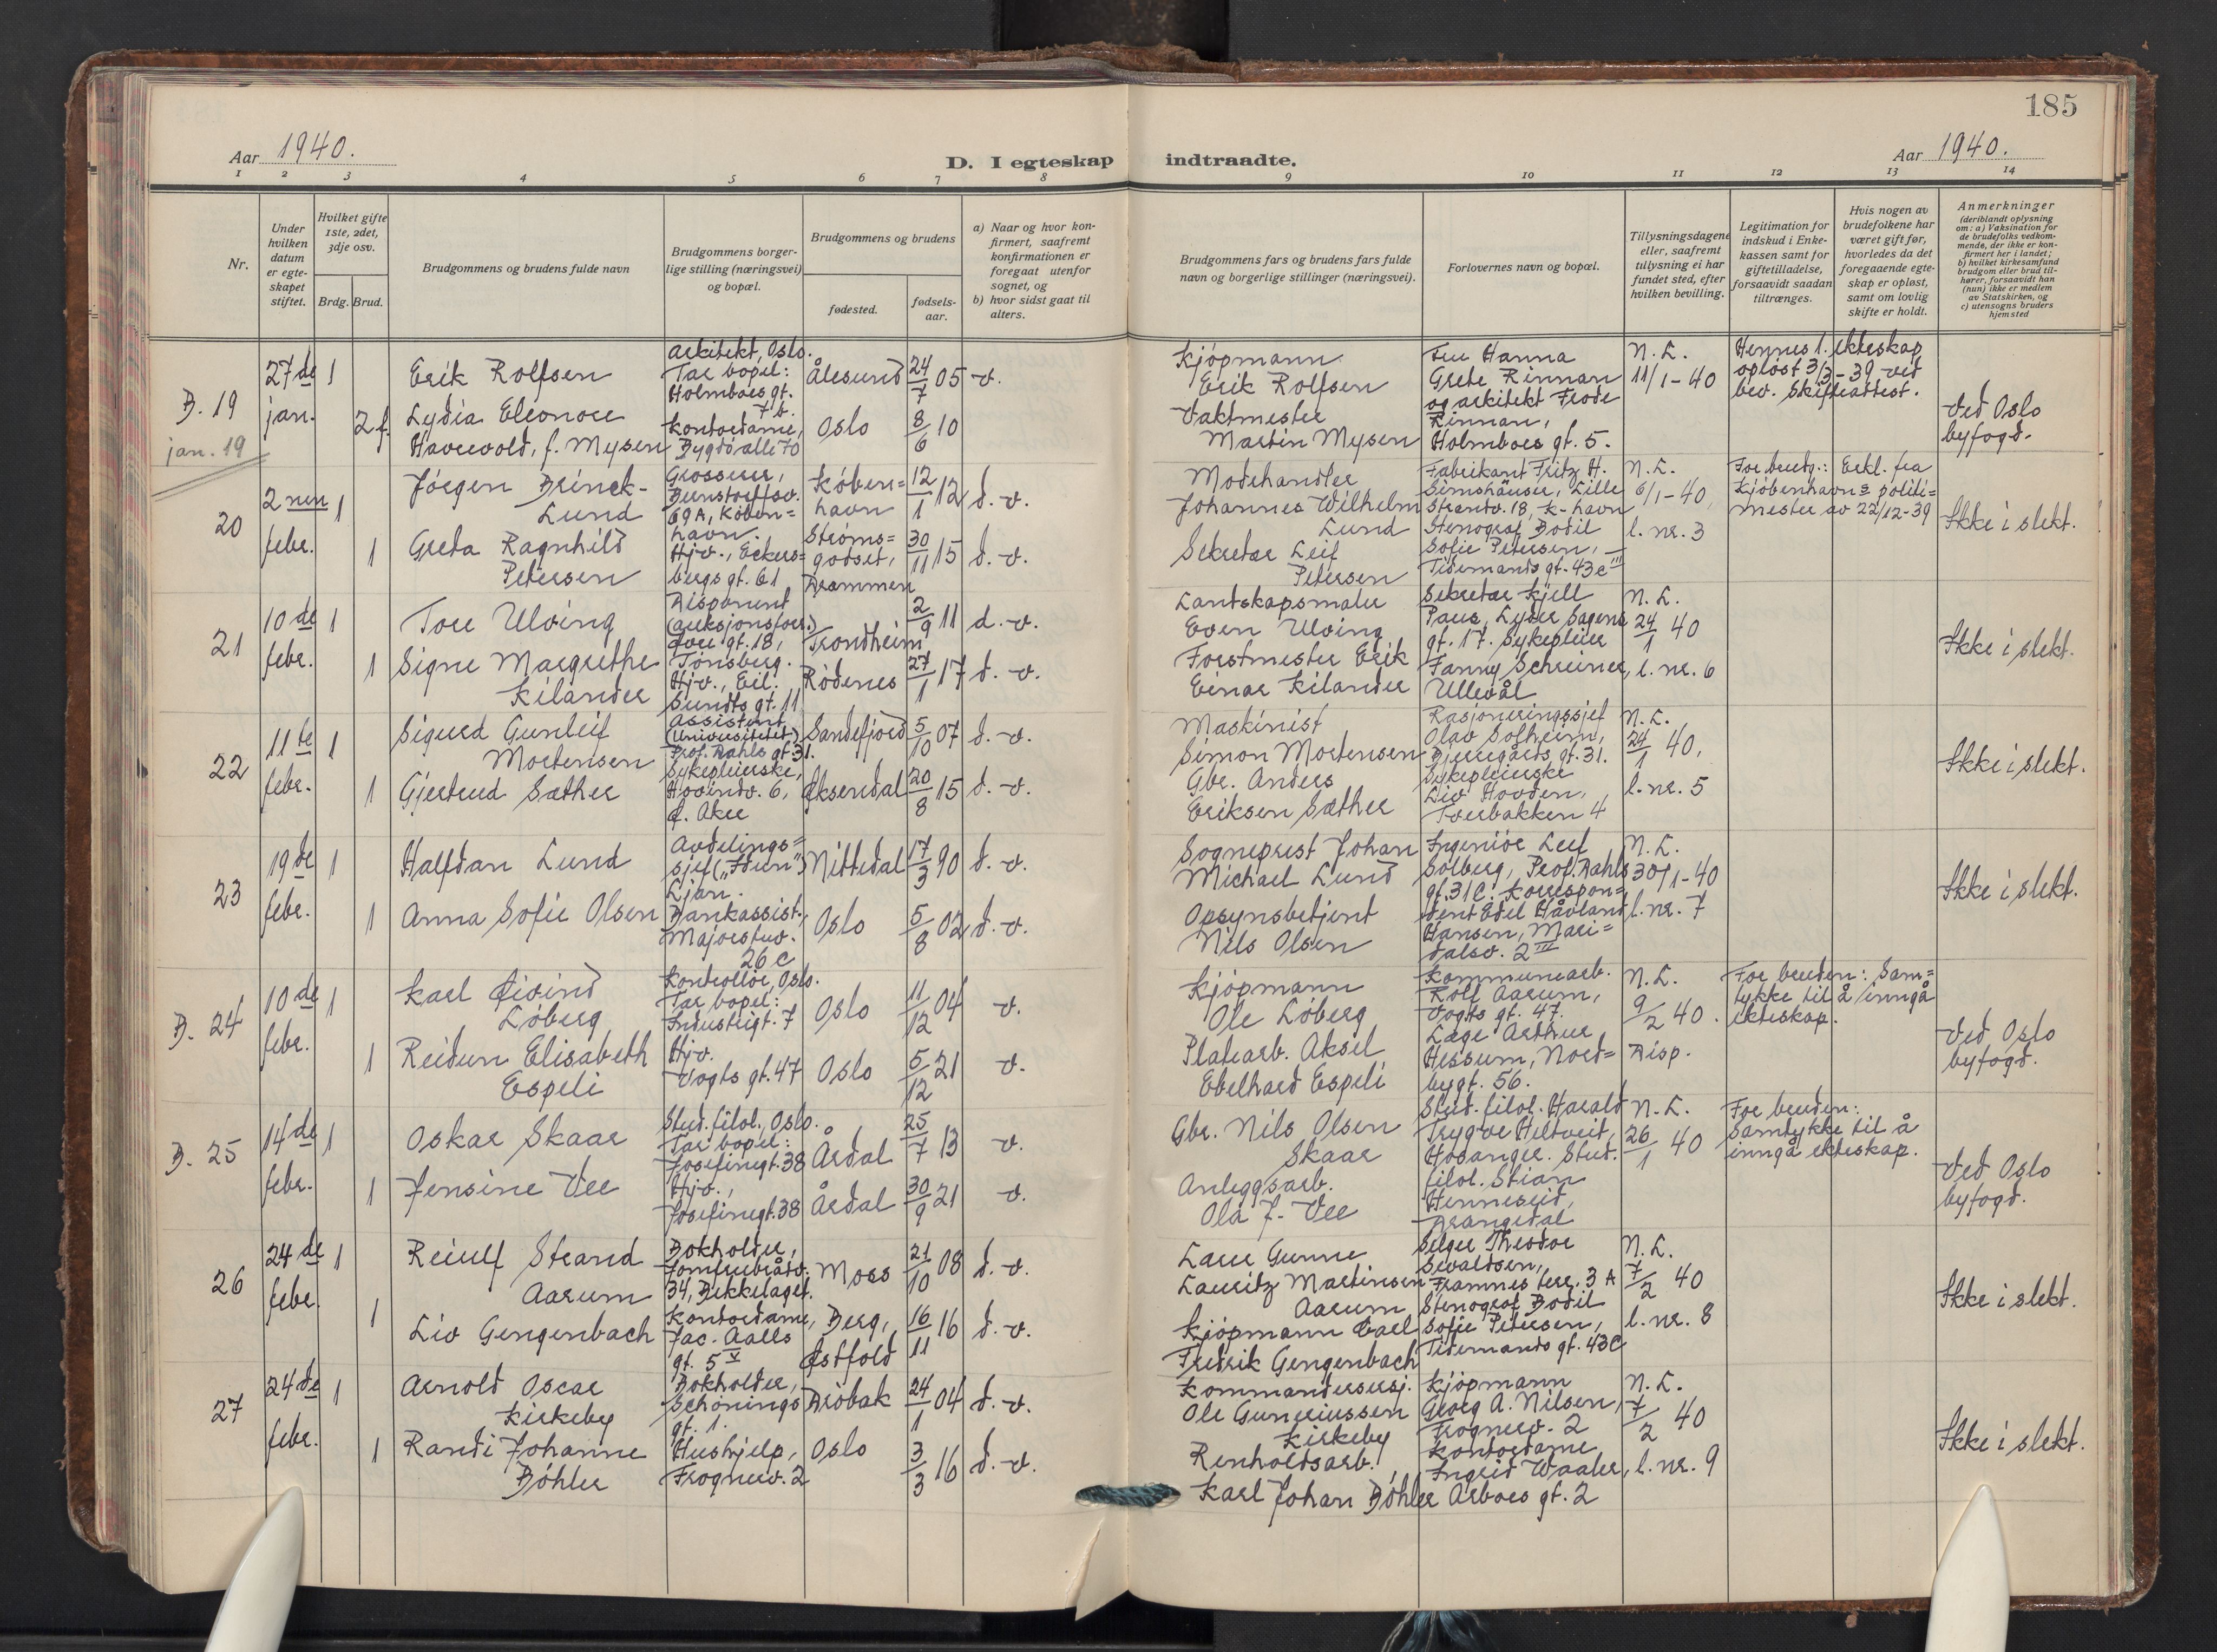 185
Aar 1940.
D. I egteskap indtraadte.
Aar 1940.
1 2 3 4 5 6 7 8 9 10 11 12 13 14
Nr.
Under
hvilken
datum
er egte-
skapet
stiftet.
Hvilket gifte
1ste, 2det,
3dje osv.
Brdg. Brud.
Brudgommens og brudens fulde navn
Brudgommens borger-
lige stilling (næringsvei)
og bopæl.
Brudgommens og brudens
fødested.
fødsels-
aar.
a) Naar og hvor kon-
firmert, saafremt
konfirmationen er
foregaat utenfor
sognet, og
b) hvor sidst gaat til
alters.
Brudgommens fars og brudens fars fulde
navn og borgerlige stillinger (næringsvei).
Forlovernes navn og bopæl.
Tillysningsdagene
eller, saafremt
tillysning ei har
fundet sted, efter
hvilken bevilling.
Legitimation for
indskud i Enke-
kassen samt for
giftetilladelse,
forsaavidt saadan
tiltrænges.
Hvis nogen av
brudefolkene har
været gift før,
hvorledes da det
foregaaende egte-
skap er opløst,
samt om lovlig
skifte er holdt.
Anmerkninger
(deriblandt oplysning
om: a) Vaksination for
de brudefolks vedkom-
mende, der ikke er kon-
firmert her i landet;
b) hvilket kirkesamfund
brudgom eller brud til-
hører, forsaavidt han
(hun) ikke er medlem
av Statskirken, og
c) utensogns bruders
hjemsted
B. 19
jan. 19
27de
jan.
1
2 f.
Erik Rolfsen
Lydia Eleonore
Havrevold, f. Mysen
Arkitekt, Oslo.
Tar bopel:
Holmboes gt.
7 b.
Kontordame,
Bygdø allé 70
Ålesund
Oslo
24/7 05
8/6 10
v.
Kjøpmann
Erik Rolfsen
Vaktmester
Martin Mysen
Fru Hanna
Grete Rinnan
og arkitekt Frode
Rinnan,
Holmboes gt. 5.
N. L.
11/1-40
Hennes 1. ekteskap
opløst 3/3-39 ved
bev. Skifteattest.
Ved Oslo
byfogd.
20
2nen
febr.
1
1
Jörgen Brinck-
Lund
Greta Ragnhild
Petersen
Grosserer,
Bernstorffsv.
69A, Köben=
havn.
Hjv., Eckers=
bergs gt. 61
Köben=
havn
Ströms=
godset,
Drammen
12/1 12
30/11 15
d. v.
d. v.
Modehandler
Johannes Wilhelm
Lund
Sekretær Leif
Petersen
Fabrikant Fritz H.
Simshäuser, Lille
Strandv. 18, K-havn
Stenograf Bodil
Sofie Petersen,
Tidemands gt. 43c III
N. L.
6/1-40,
l. nr. 3
For brudg.: Erkl. fra
Kjøbenhavns politi=
mester av 22/12-39
Ikke i slekt.
21
10de
febr.
1
1
Tore Ulving
Signe Margrethe
Kilander
Disponent
(auksjonsforr.)
Tore gt. 18,
Tønsberg.
Hjv., Eil.
Sundts gt. 11
Trondheim
Rödenes
2/9 11
27/1 17
d. v.
d. v.
Landskapsmaler
Even Ulving
Forstmester Erik
Einar Kilander
Sekretær Kjell
Paus, Lyder Sagens
gt. 17. Sykepleier
Fanny Schreiner,
Ullevål
N. L.
24/1 40
l. nr. 6
Ikke i slekt.
22
11te
febr.
1
1
Sigurd Gunleif
Mortensen
Gjertrud Sæther
Assistent
(Universitetet)
Prof. Dahls gt. 31.
Sykepleierske,
Hovindv. 6,
Ø. Aker
Sandefjord
Øksendal
5/10 07
20/8 15
d. v.
d. v.
Maskinist
Simon Mortensen
Gbr. Anders
Eriksen Sæther
Rasjoneringssjef
Olav Solheim,
Bjerregårds gt. 31.
Sykepleierske
Liv Hovden,
Tverbakken 4
N. L.
24/1 40,
l. nr. 5
Ikke i slekt.
23
19de
febr.
1
1
Halfdan Lund
Anna Sofie Olsen
Avdelings=
sjef („Idun")
Ljan.
Bankassist.,
Majorstuv.
26 c
Nittedal
Oslo
17/3 90
5/8 02
d. v.
d. v.
Sogneprest Johan
Michael Lund
Opsynsbetjent
Nils Olsen
Ingeniör Leif
Solberg, Prof. Dahls
gt. 31 C. Korrespon=
dent Edel Håvland
Hansen, Mari=
dalsv. 2 III
N. L.
30/1-40
l. nr. 7
Ikke i slekt.
B. 24
10de
febr.
1
1
Karl Øivind
Löberg
Reidun Elisabeth
Espeli
Kontrollør, Oslo.
Tar bopel:
Industrigt. 7
Hjv.
Vogts gt. 47
Oslo
Oslo
11/12 04
5/12 21
v.
v.
Kjøpmann
Ole Löberg
Platearb. Aksel
Edelhard Espeli
Kommunearb.
Rolf Aarum,
Vogts gt. 47.
Læge Arthur
Hessum, Nord=
bygt. 56.
N. L.
9/2 40.
Disp.
For bruden: Sam=
tykke til å inngå
ekteskap.
Ved Oslo
byfogd.
B. 25
14de
febr.
1
1
Oskar Skaar
Jensine Vee
Stud. filol., Oslo.
Tar bopel:
Josefinegt. 38
Hjv.,
Josefinegt. 38
Årdal
Årdal
25/7 13
30/9 21
v.
v.
Gbr. Nils Olsen
Skaar
Anleggsarb.
Ola J. Vee
Stud. filol. Harald
Trygve Heltveit,
Hosanger. Stud.
filol. Stian
Henneseid,
Drangedal
N. L.
26/1 40
For bruden:
Samtykke til å
inngå ekteskap.
Ved Oslo
byfogd.
26
24de
febr.
1
1
Reiulf Strand
Aarum
Liv Gengenbach
Bokholder,
Jomfrubråtv.
34, Bekkelaget.
Kontordame,
Jac. Aalls
gt. 5 V
Moss
Berg,
Østfold
21/10 08
16/11 16
d. v.
d. v.
Lærer Gunne
Lauritz Martinsen
Aarum
Kjøpmann Carl
Fredrik Gengenbach
Selger Theodor
Sevaldsen,
Framnes terr. 3 A
Stenograf Bodil
Sofie Petersen,
Tidemands gt. 43c
N. L.
7/2 40
l. nr. 8
Ikke i slekt.
27
24de
febr.
1
1
Arnold Oscar
Kirkeby
Randi Johanne
Böhler
Bokholder,
Schönings
gt. 1.
Hushjelp,
Frognerv. 2
Dröbak
Oslo
24/1 04
3/3 16
d. v.
d. v.
Kommandersersj.
Ole Guneriussen
Kirkeby
Renholdsarb.
Karl Johan Böhler
Kjøpmann
Georg A. Nilsen,
Frognerv. 2
Kontordame
Ingrid Waaler,
Arboes gt. 2
N. L.
7/2 40
l. nr. 9
Ikke i slekt.